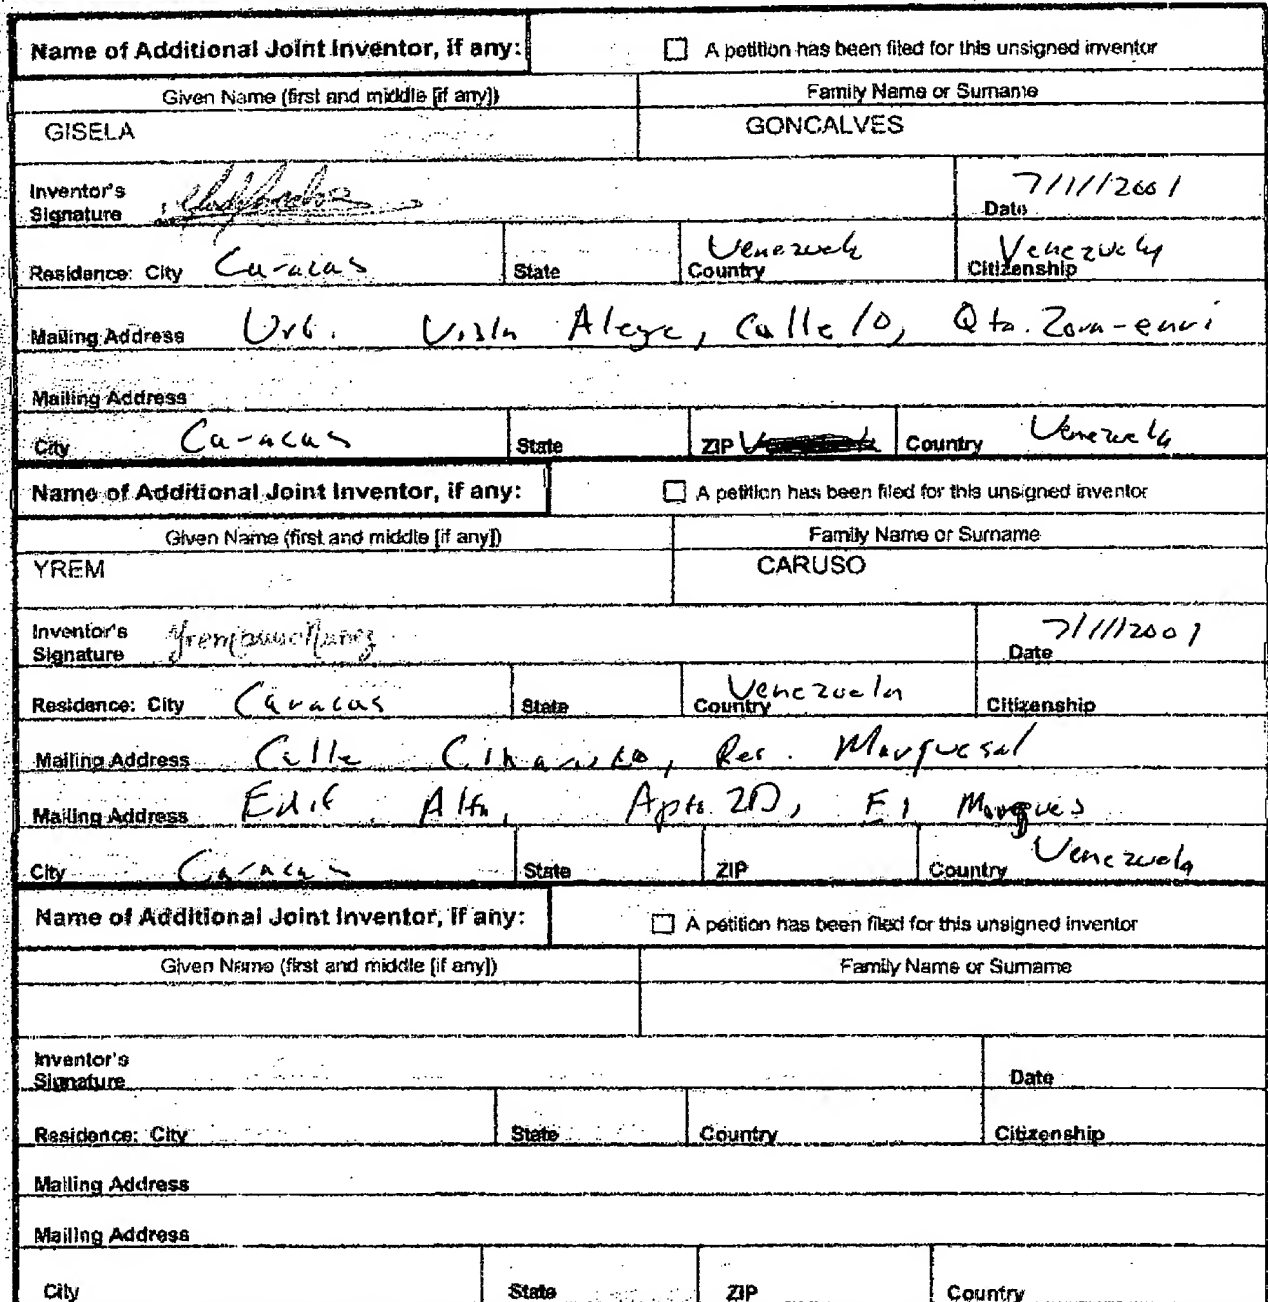 Name of Additional Joint Inventor, if any: ☐ A petition has been filed for this unsigned inventor
Given Name (first and middle [if any]) Family Name or Surname
GISELA GONCALVES
Inventor's Signature Date 7/11/2001
Residence: City Caracas State Country Venezuela Citizenship Venezuela
Mailing Address Urb. Vista Alegre, Calle 10, Qta. Zora-enri
Mailing Address
City Caracas State ZIP Country Venezuela
Name of Additional Joint Inventor, if any: ☐ A petition has been filed for this unsigned inventor
Given Name (first and middle [if any]) Family Name or Surname
YREM CARUSO
Inventor's Signature Date 7/11/2001
Residence: City Caracas State Country Venezuela Citizenship
Mailing Address Calle Res. Marquesal
Mailing Address Edif. Alfa, Apto. 2D, El Marques
City Caracas State ZIP Country Venezuela
Name of Additional Joint Inventor, if any: ☐ A petition has been filed for this unsigned inventor
Given Name (first and middle [if any]) Family Name or Surname
Inventor's Signature Date
Residence: City State Country Citizenship
Mailing Address
Mailing Address
City State ZIP Country